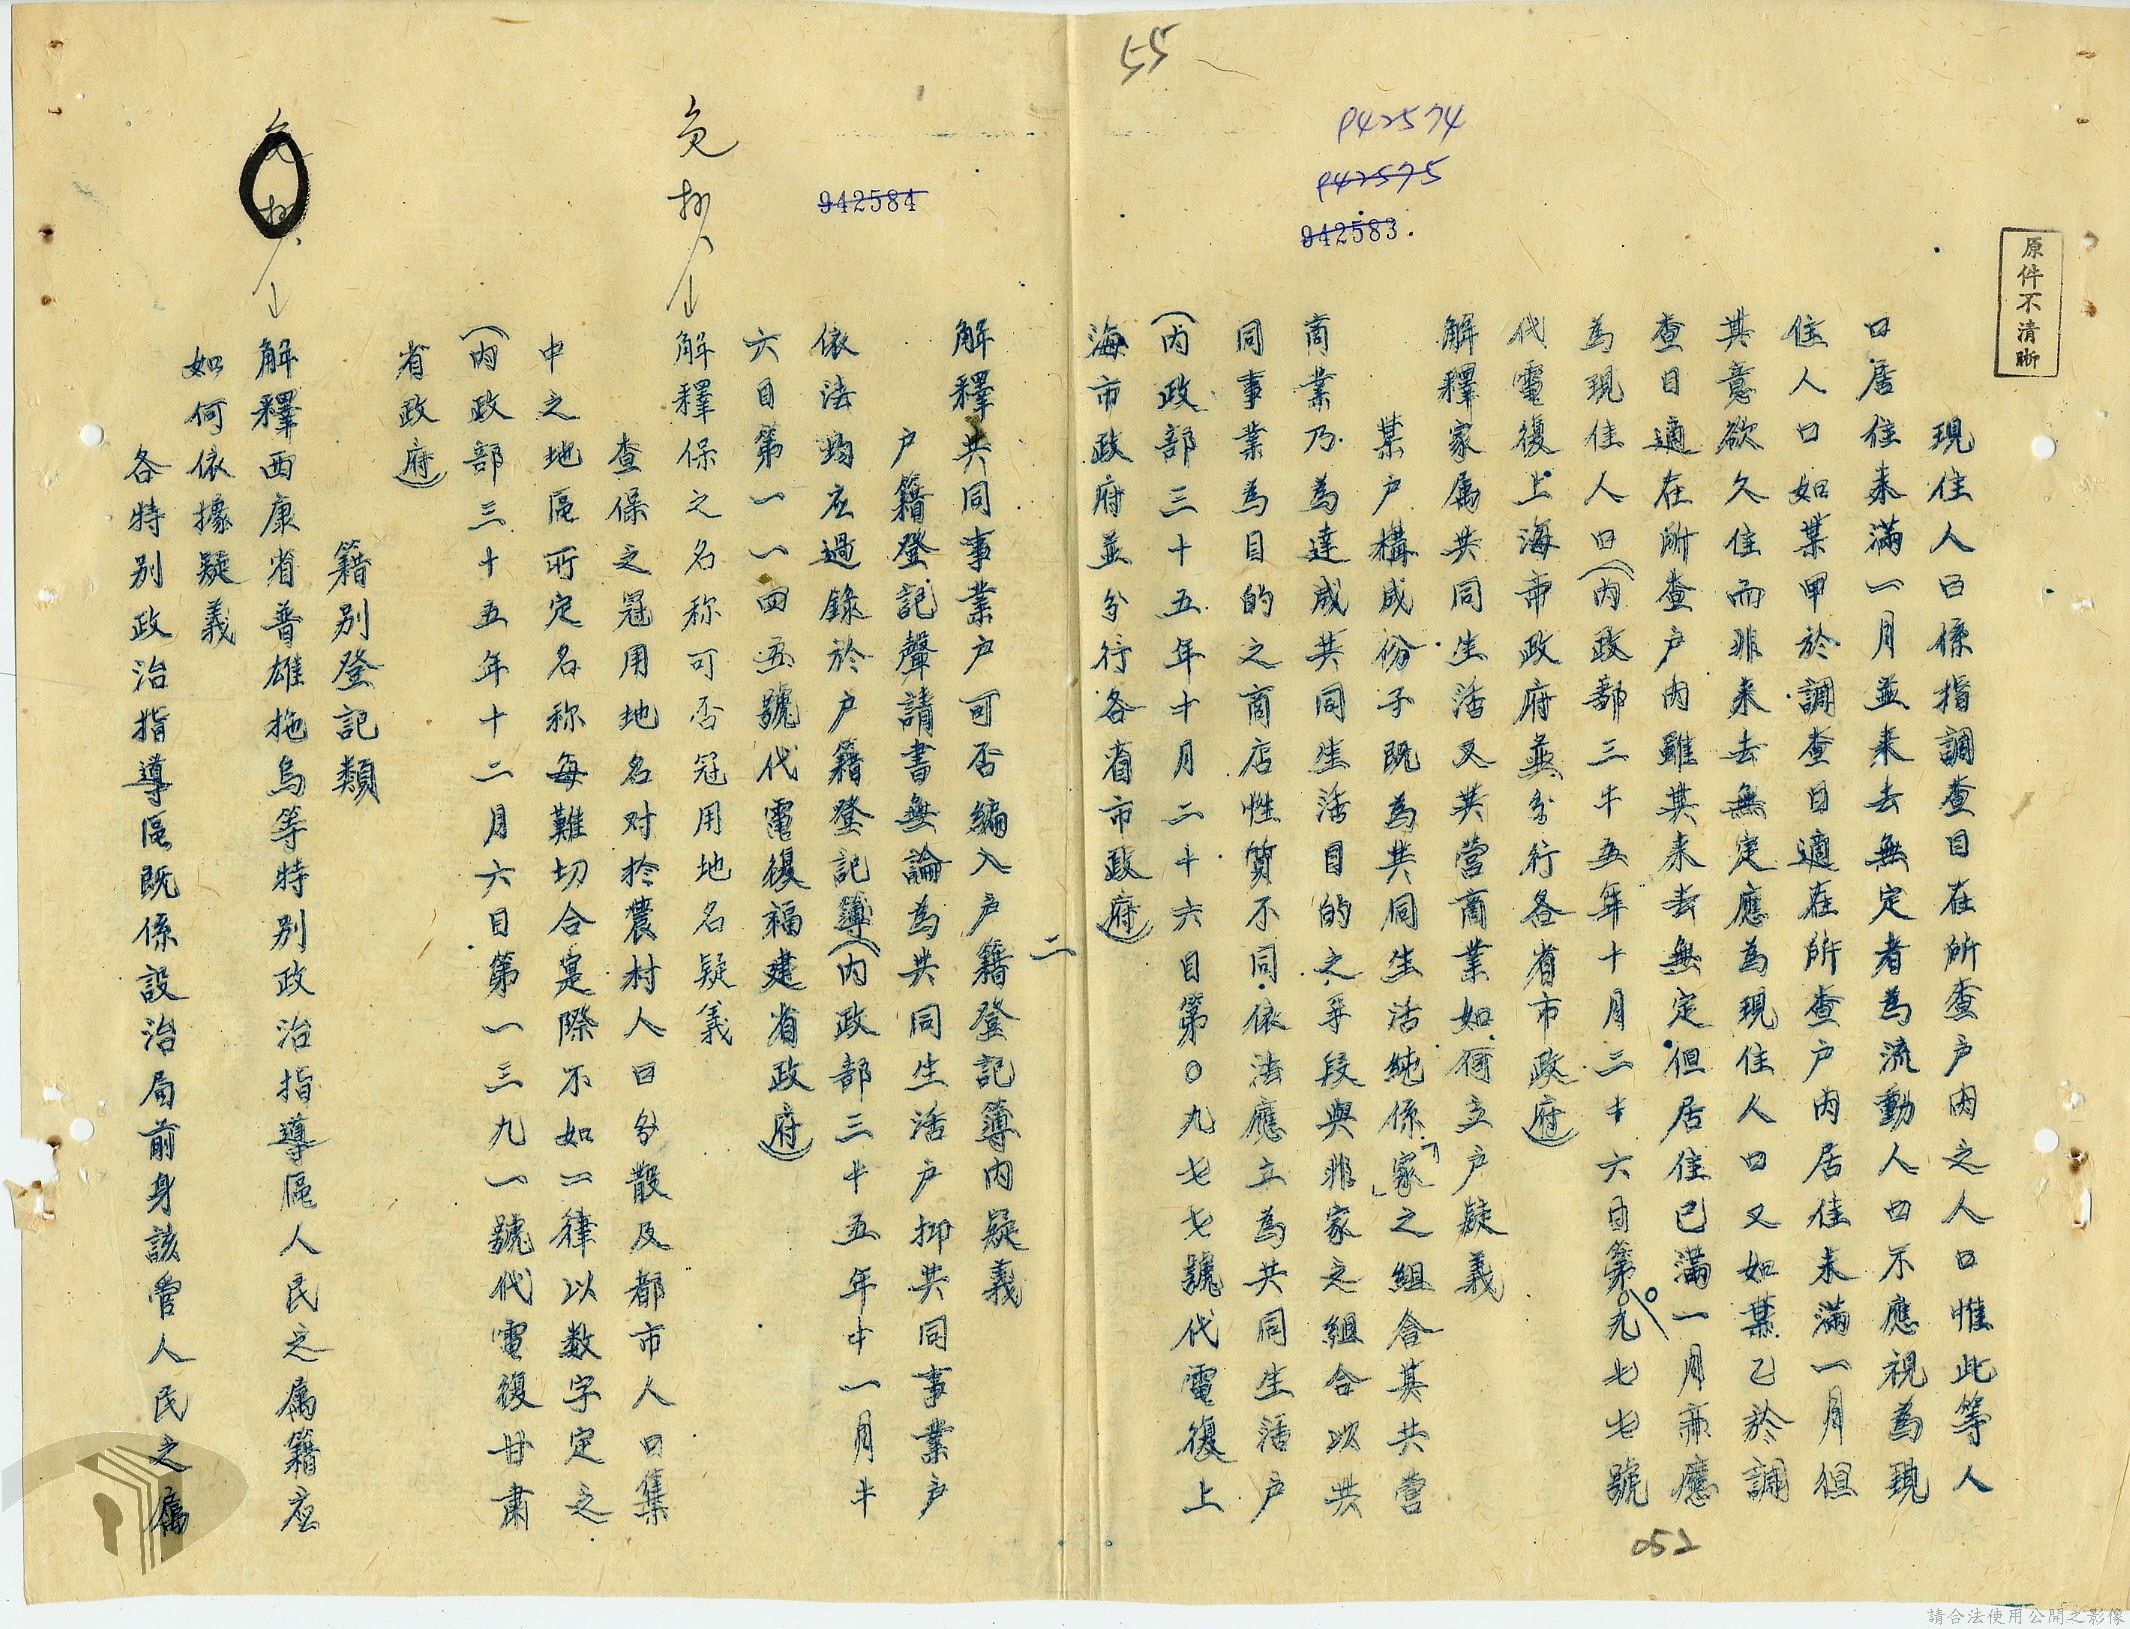 55
942574
942575
942583
原件不清晰
現住人口係指調查日在所查户内之人口惟此等人
口居住未滿一月並来去無定者為流動人口不應視為現
住人口如某甲於調查日適在所查户内居住未滿一月但
其意欲久住而非来去無定應為現住人口又如某乙於調
查日適在所查户内雖其来去無定但居住已滿一月亦應
為現住人口（内政部三十五年十月三十六日第〇九七七號
代電復上海市政府並分行各省市政府）
解釋家属共同生活又共營商業如何立户疑義
某户構成份子既為共同生活純係「家」之組合其共營
商業乃為達成共同生活目的之手段與非家之組合以共
同事業為目的之商店性質不同依法應立為共同生活户
（内政部三十五年十月二十六日第〇九七七號代電復上
海市政府並分行各省市政府）
052
二
942584
解釋共同事業户可否編入户籍登記簿内疑義
户籍登記聲請書無論為共同生活户抑共同事業户
依法均应過錄於户籍登記簿（内政部三十五年十一月十
六日第一一四五號代電復福建省政府）
免抄
解釋保之名称可否冠用地名疑義
查保之冠用地名对於農村人口分散及都市人口集
中之地區所定名称每難切合寔際不如一律以数字定之
（内政部三十五年十二月六日第一三九一號代電復甘肅
省政府）
籍别登記類
免抄
解釋西康省普雄拖烏等特别政治指導區人民之属籍应
如何依據疑義
各特别政治指導區既係設治局前身該管人民之属
請合法使用公開之影像